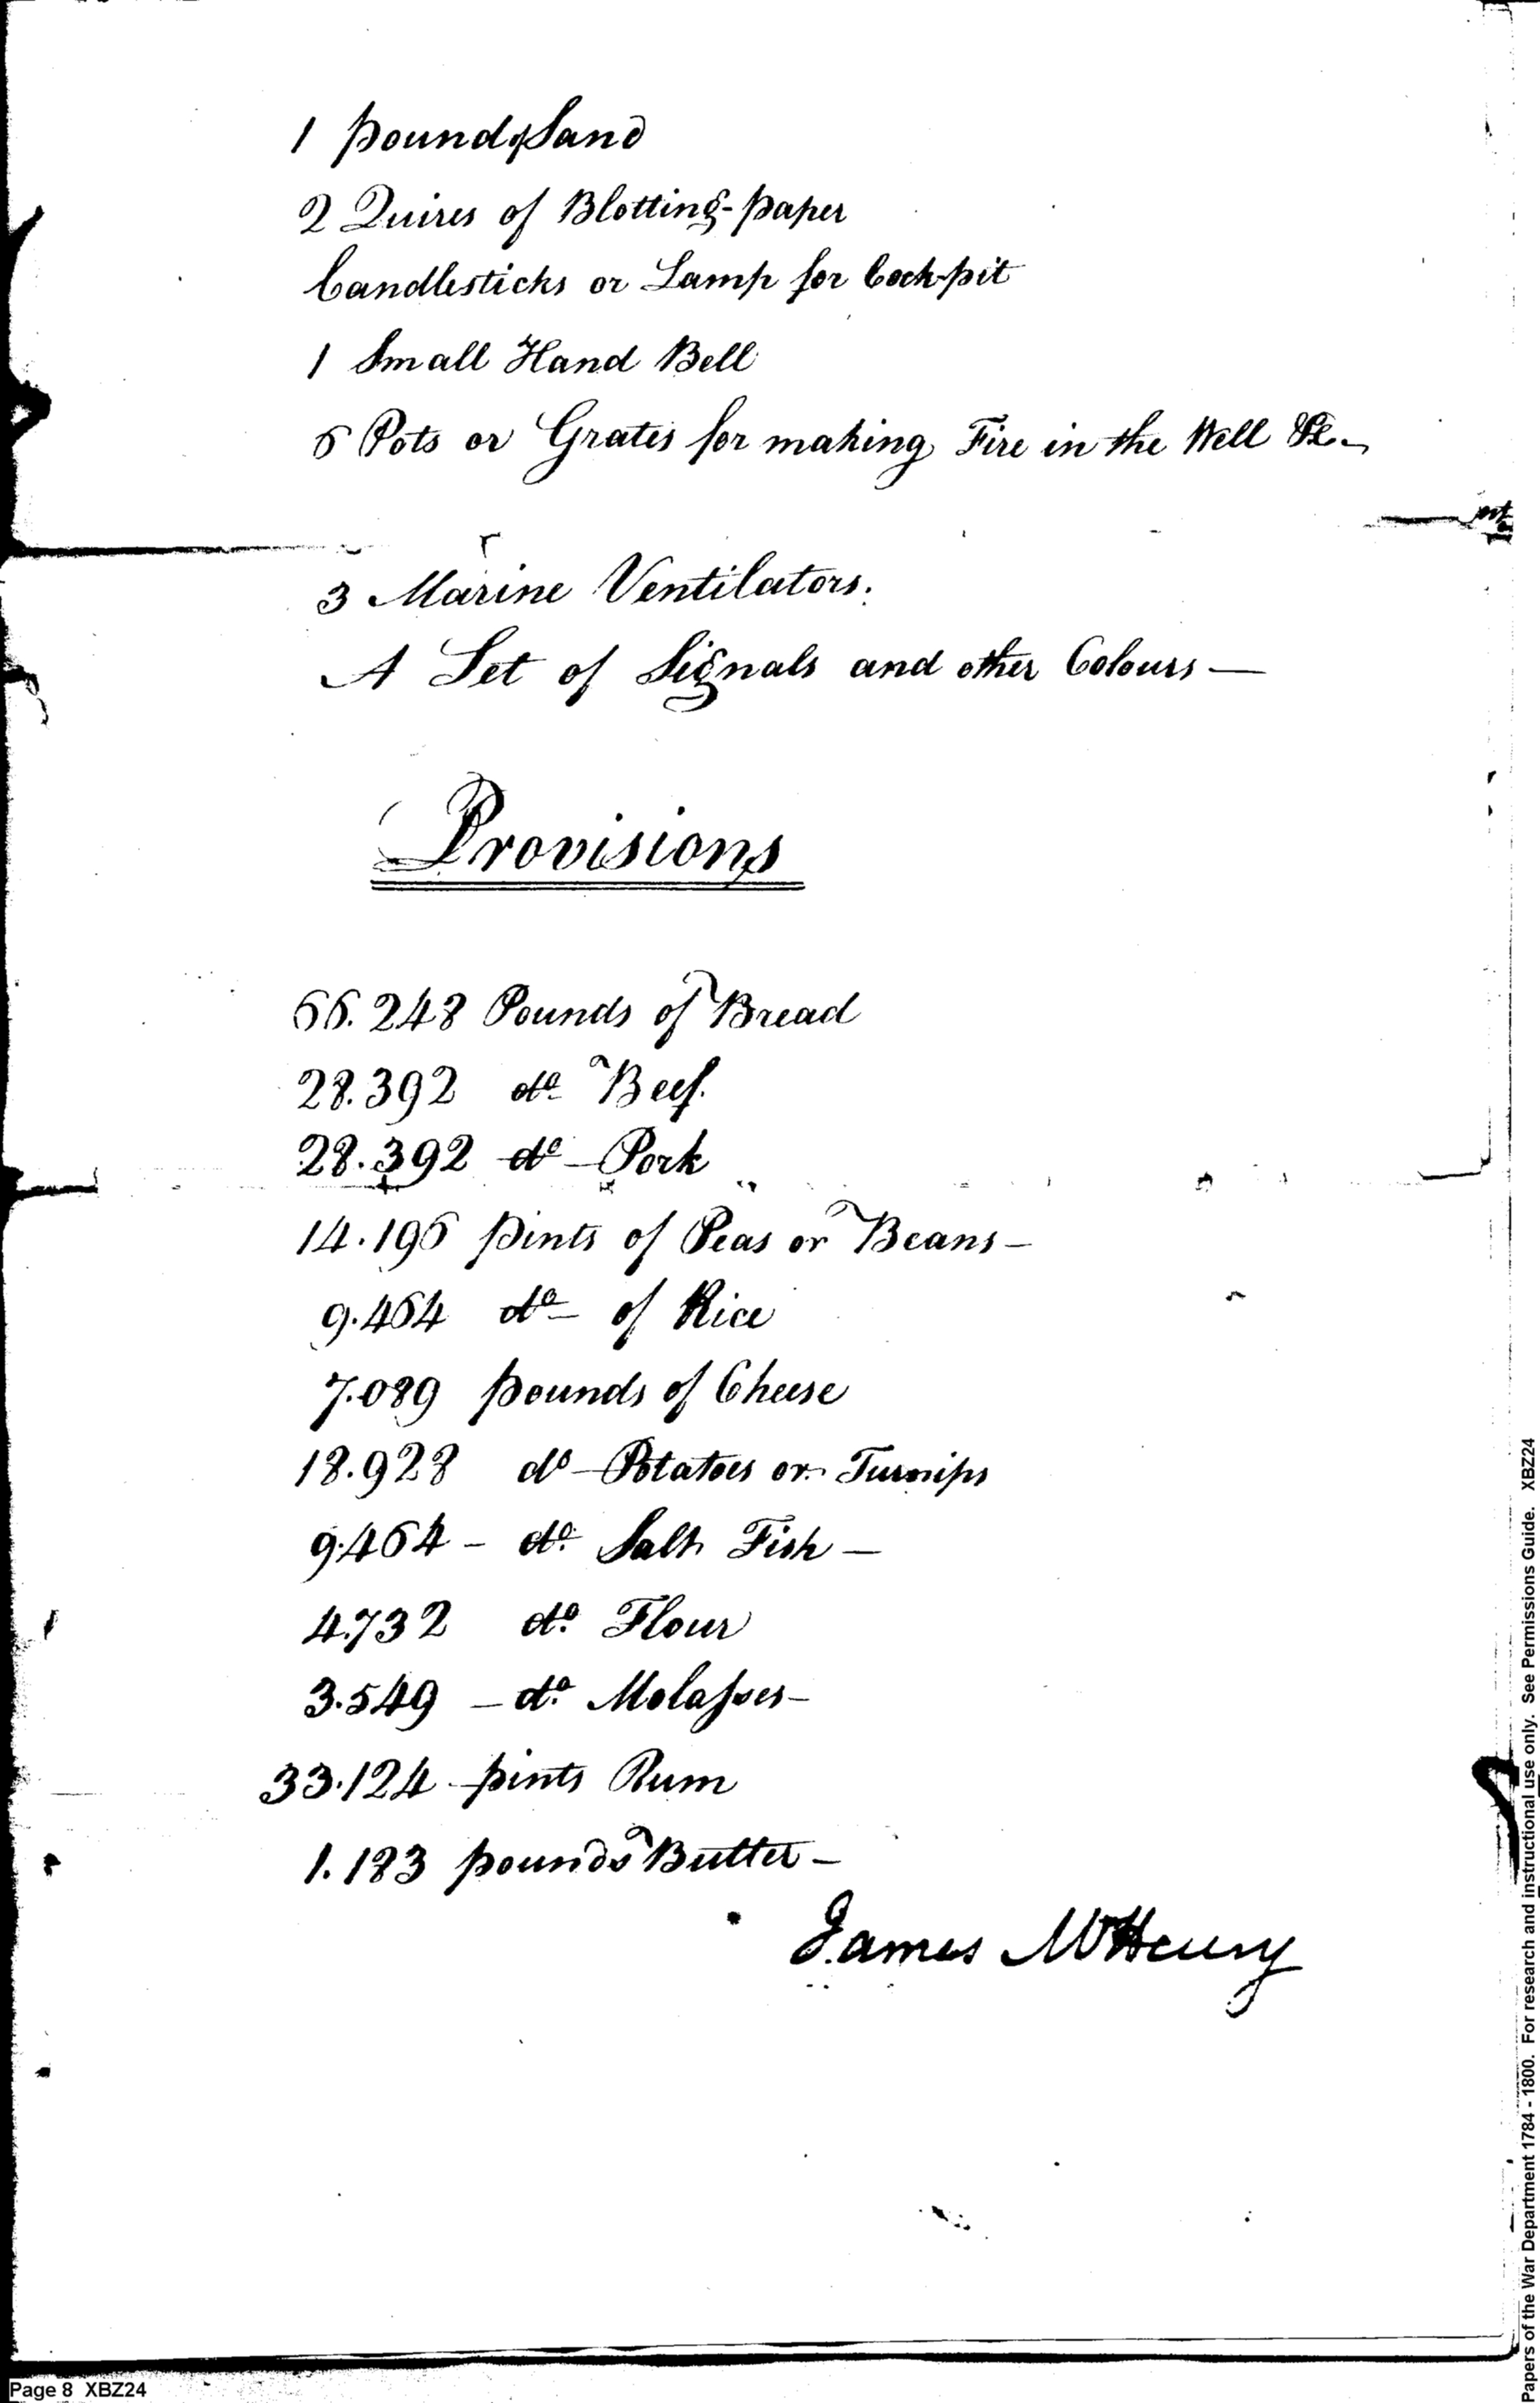 1 pound of Sand
2 Quires of Blotting-paper
Candlesticks or Lamp for Cock-pit
1 Small Hand Bell
6 Pots or Grates for making Fire in the Well &c.
3 Marine Ventilators.
A Set of Signals and other Colours —
Provisions
66.248 Pounds of Bread
28.392 do Beef.
28.392 do — Pork
14.196 pints of Peas or Beans —
9.464 do — of Rice
7.089 pounds of Cheese
18.928 do — Potatoes or Turnips
9.464 — do. Salt Fish —
4.732 do. Flour
3.549 — do. Molasses —
33.124 pints Rum
1.183 pounds Butter —
James McHenry
Page 8 XBZ24
Papers of the War Department 1784 - 1800. For research and instructional use only. See Permissions Guide. XBZ24